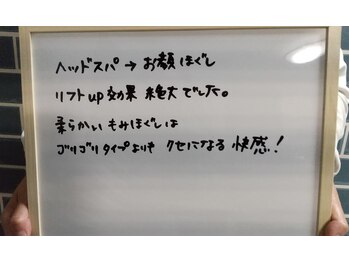 ヘッドスパ → お顔ほぐし
リフトup効果 絶大でした。
柔らかいもみほぐしは
ゴリゴリタイプよりも クセになる 快感！